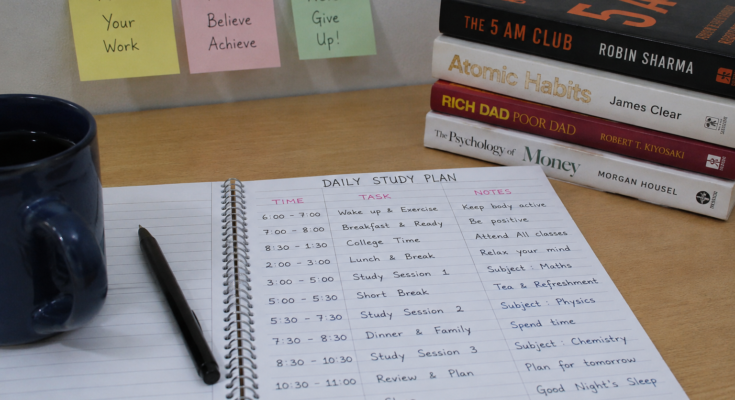 Your
Work
Believe
Achieve
Give
Up!
THE 5 AM CLUB ROBIN SHARMA
Atomic Habits James Clear
RICH DAD POOR DAD ROBERT T. KIYOSAKI
The Psychology of Money MORGAN HOUSEL
DAILY STUDY PLAN
TIME TASK NOTES
6:00 - 7:00 Wake up & Exercise Keep body active
7:00 - 8:00 Breakfast & Ready Be positive
8:30 - 1:30 College Time Attend All classes
2:00 - 3:00 Lunch & Break Relax your mind
3:00 - 5:00 Study Session 1 Subject : Maths
5:00 - 5:30 Short Break Tea & Refreshment
5:30 - 7:30 Study Session 2 Subject : Physics
7:30 - 8:30 Dinner & Family Spend time
8:30 - 10:30 Study Session 3 Subject : Chemistry
10:30 - 11:00 Review & Plan Plan for tomorrow
Good Night's Sleep